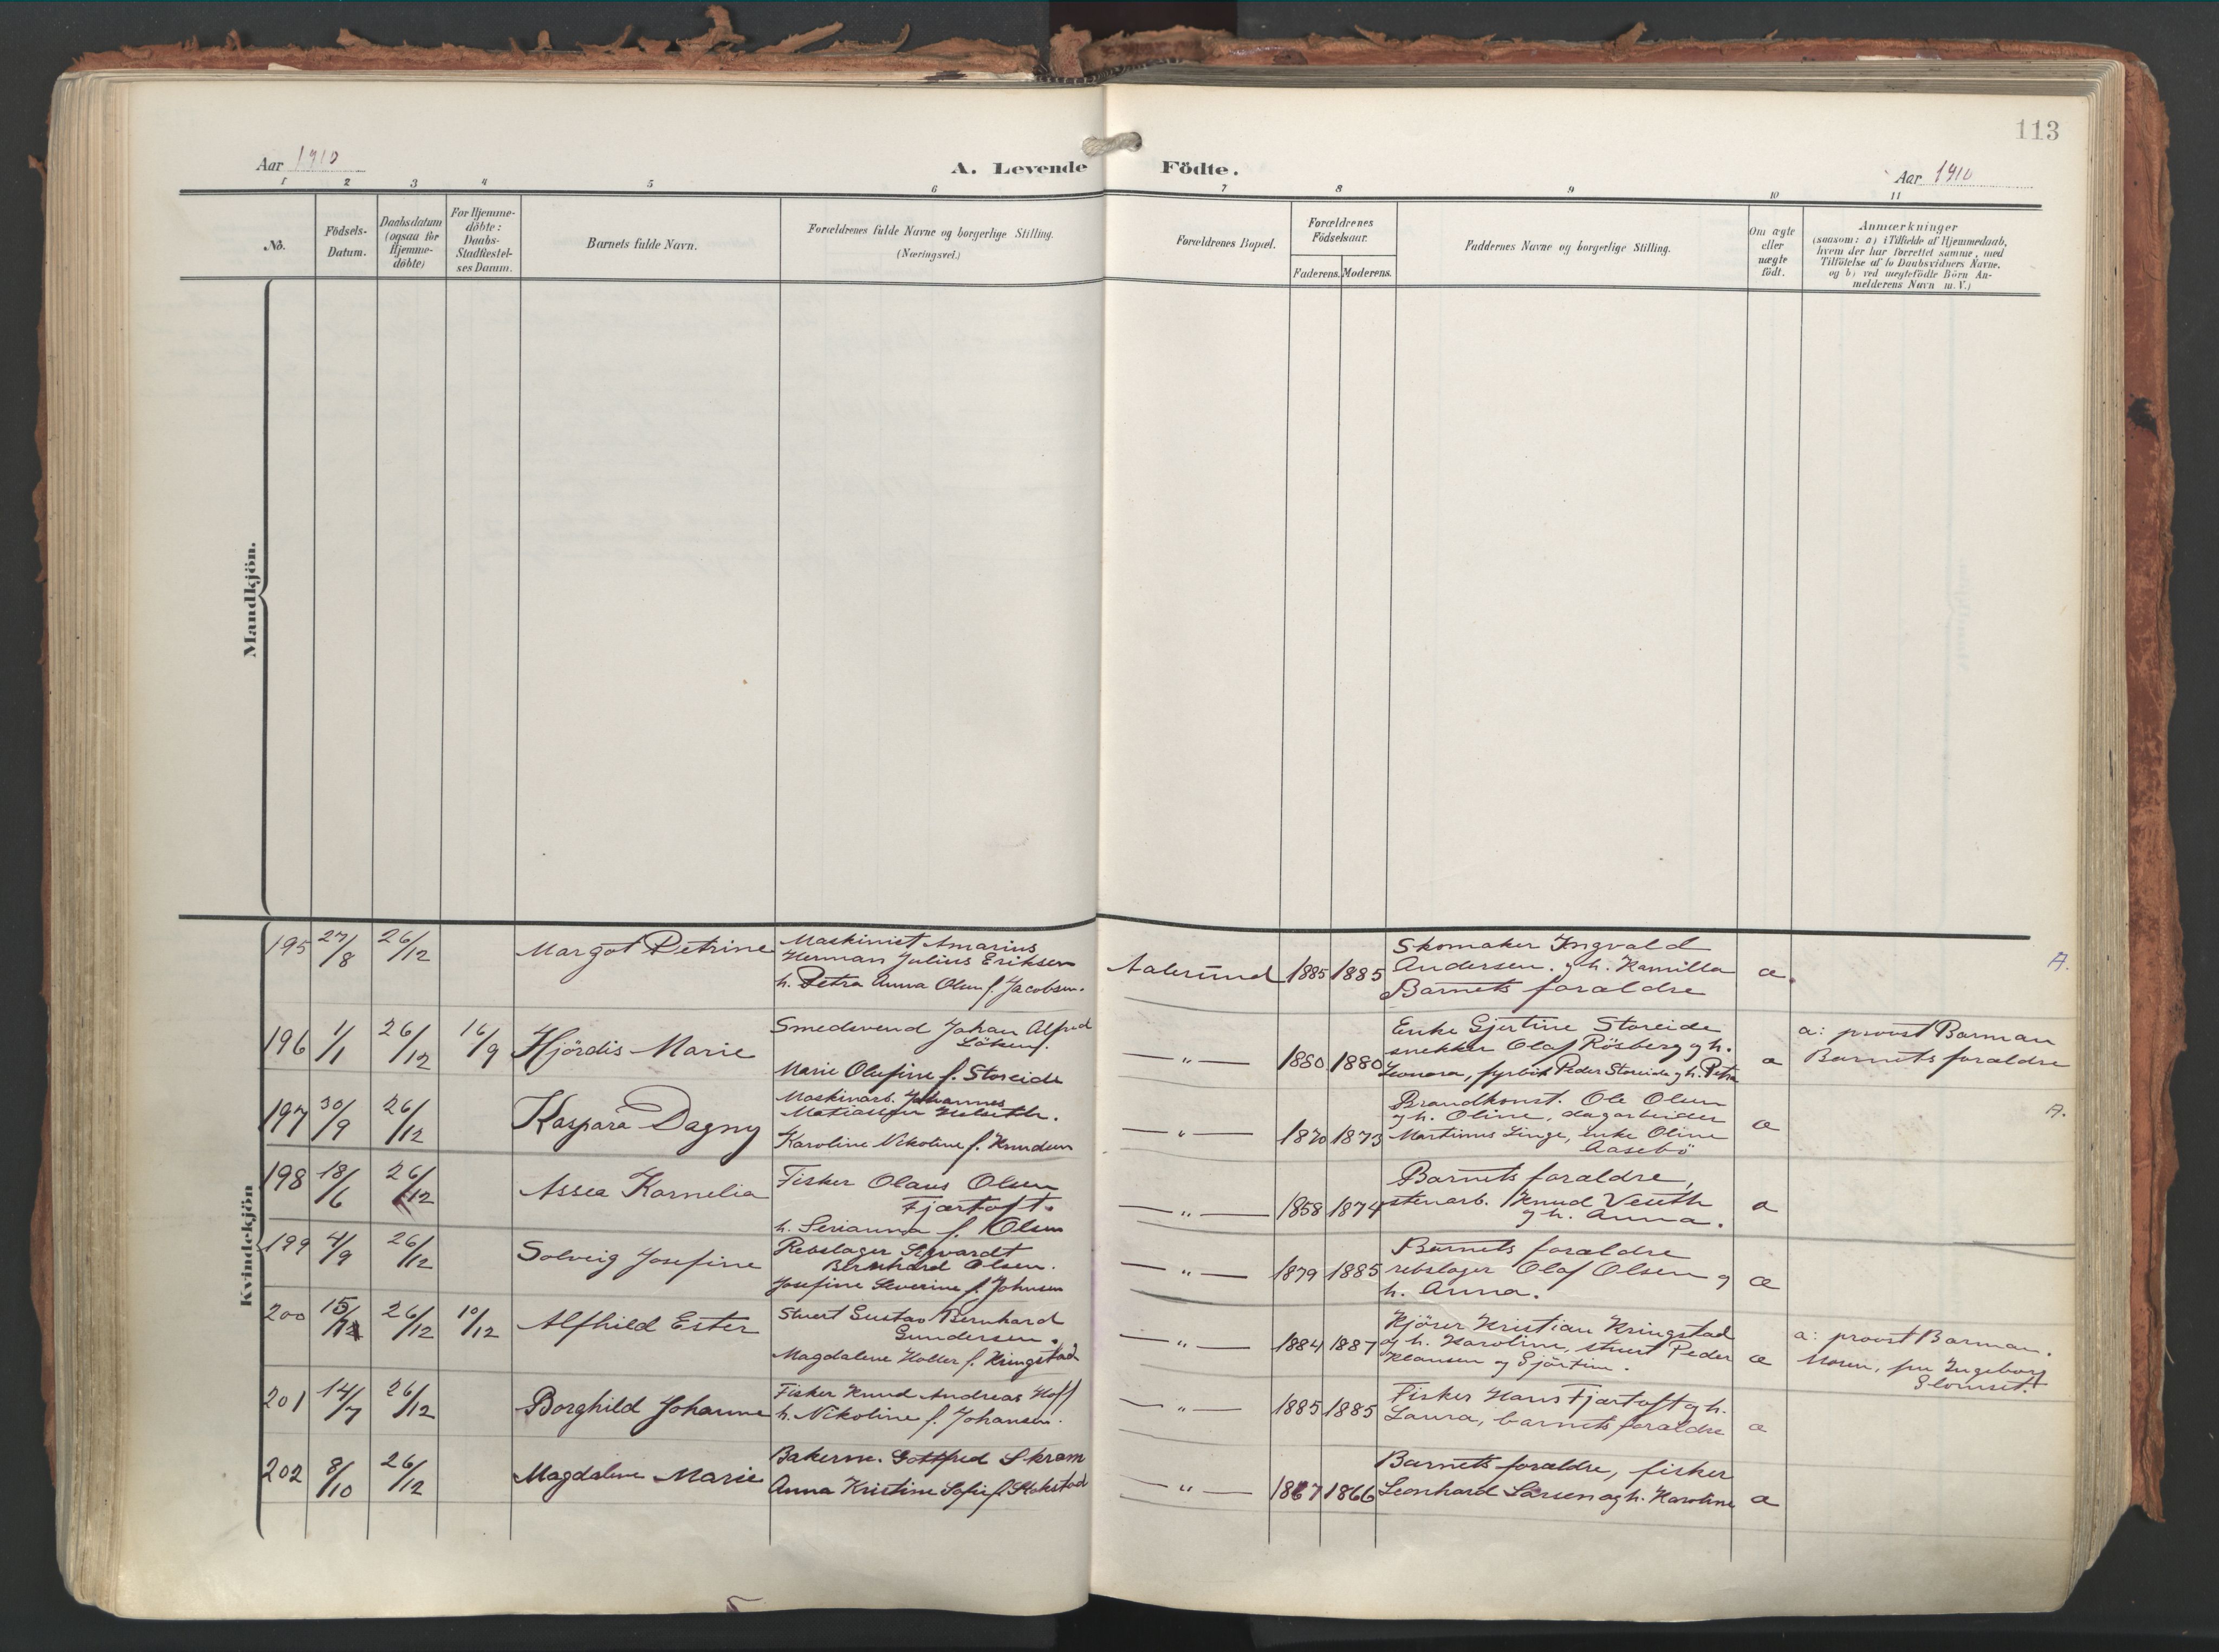 113
Aar 1910
A. Levende Födte.
Aar 1910
1 2 3 4 5 6 7 8 9 10 11
No.
Födsels-Datum.
Daabsdatum (ogsaa for Hjemme-döbte)
For Hjemme-döbte: Daabs-Stadfæstel-ses Datum.
Barnets fulde Navn.
Forældrenes fulde Navne og borgerlige Stilling.
(Næringsvei.)
Forældrenes Bopæl.
Forældrenes Födselsaar.
Faderens. Moderens.
Faddernes Navne og borgerlige Stilling.
Om ægte eller uægte födt.
Anmærkninger
(saasom: a) i Tilfælde af Hjemmedaab,
hvem der har forrettet samme, med
Tilföielse af to Daabsvidners Navne.
og b) ved uægtefödte Börn An-
melderens Navn m. V.)
Mandkjön.
Kvindekjön
195 27/8 26/12 Margot Petrine
Maskinist Amarius
Herman Julius Eriksen
h. Petra Anna Olsen f. Jacobsen.
Aalesund 1885 1885
Skomaker Ingvald
Andersen. og h. Kamilla
Barnets forældre
æ. A.
196 1/1 26/12 16/9 Hjördis Marie
Smedsvend Johan Alfred
Löken.
Marie Olufine f. Storeide
— " — 1880 1880
Enke Gjertine Storeide
snekker Olaf Rösberg og h.
Leonora, fyrböt Peder Storeide og h. Petra
æ
a: provst Barman
Barnets forældre
197 30/9 26/12 Kaspara Dagny
Maskinarb. Johannes
Matiassen
Karoline Nikoline f. Knudsen
— " — 1870 1873
Brandkonst. Ole Olsen
og h. Oline, dagarbeider
Martinus Linge, enke Oline
Aasebö
æ A.
198 18/6 26/12 Assea Kornelia
Fisker Olaus Olsen
Fjærtoft.
h. Serianna f. Olsen
— " — 1858 1874
Barnets forældre,
stenarb. Knud Veseth
og h. Anna.
æ
199 4/9 26/12 Solveig Josefine
Rebslager Sivardt
Bernhard Olsen.
Josefine Severine f. Johnsen
— " — 1879 1885
Barnets forældre
rebslager Olaf Olsen og
h. Anna.
æ
200 15/12 26/12 10/12 Alfhild Ester
Stuert Gustav Bernhard
Gundersen.
Magdalene Holter f. Kringstad
— " — 1884 1887
Kjörer Kristian Kringstad
og h. Karoline, stuert Peder
Klausen og Gjörtine.
æ
a: provst Barman.
Moren, fru Ingeborg
Slomset.
201 14/7 26/12 Borghild Johanne
Fisker Knud Andreas Hoff
h. Nikoline f. Johansen.
— " — 1885 1885
Fisker Hans Fjærtoft og h.
Laura, barnets forældre
æ
202 8/10 26/12 Magdalene Marie
Bakerm. Gottfred Skram
Anna Kristine Sofie f. Stokstad
— " — 1867 1866
Barnets forældre, fisker
Leonhard Larsen og h. Karoline
æ